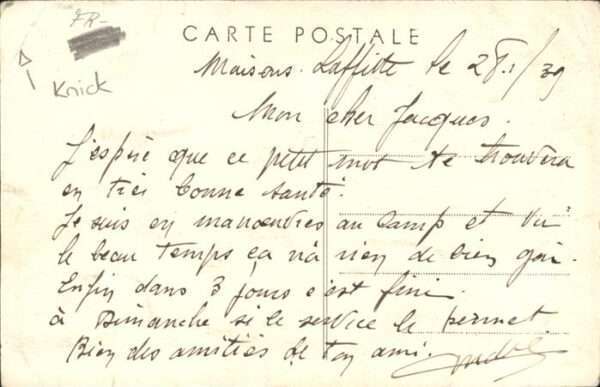 FR-
CARTE POSTALE
Knick
Maisons-Laffitte le 28.1/39
Mon cher Jacques.
J'espère que ce petit mot te trouvera
en très bonne santé.
Je suis en manoeuvres au camp et vu
le beau temps ça n'a rien de bien gai.
Enfin dans 3 jours c'est fini
à Dimanche si le service le permet.
Bien des amitiés de ton ami.